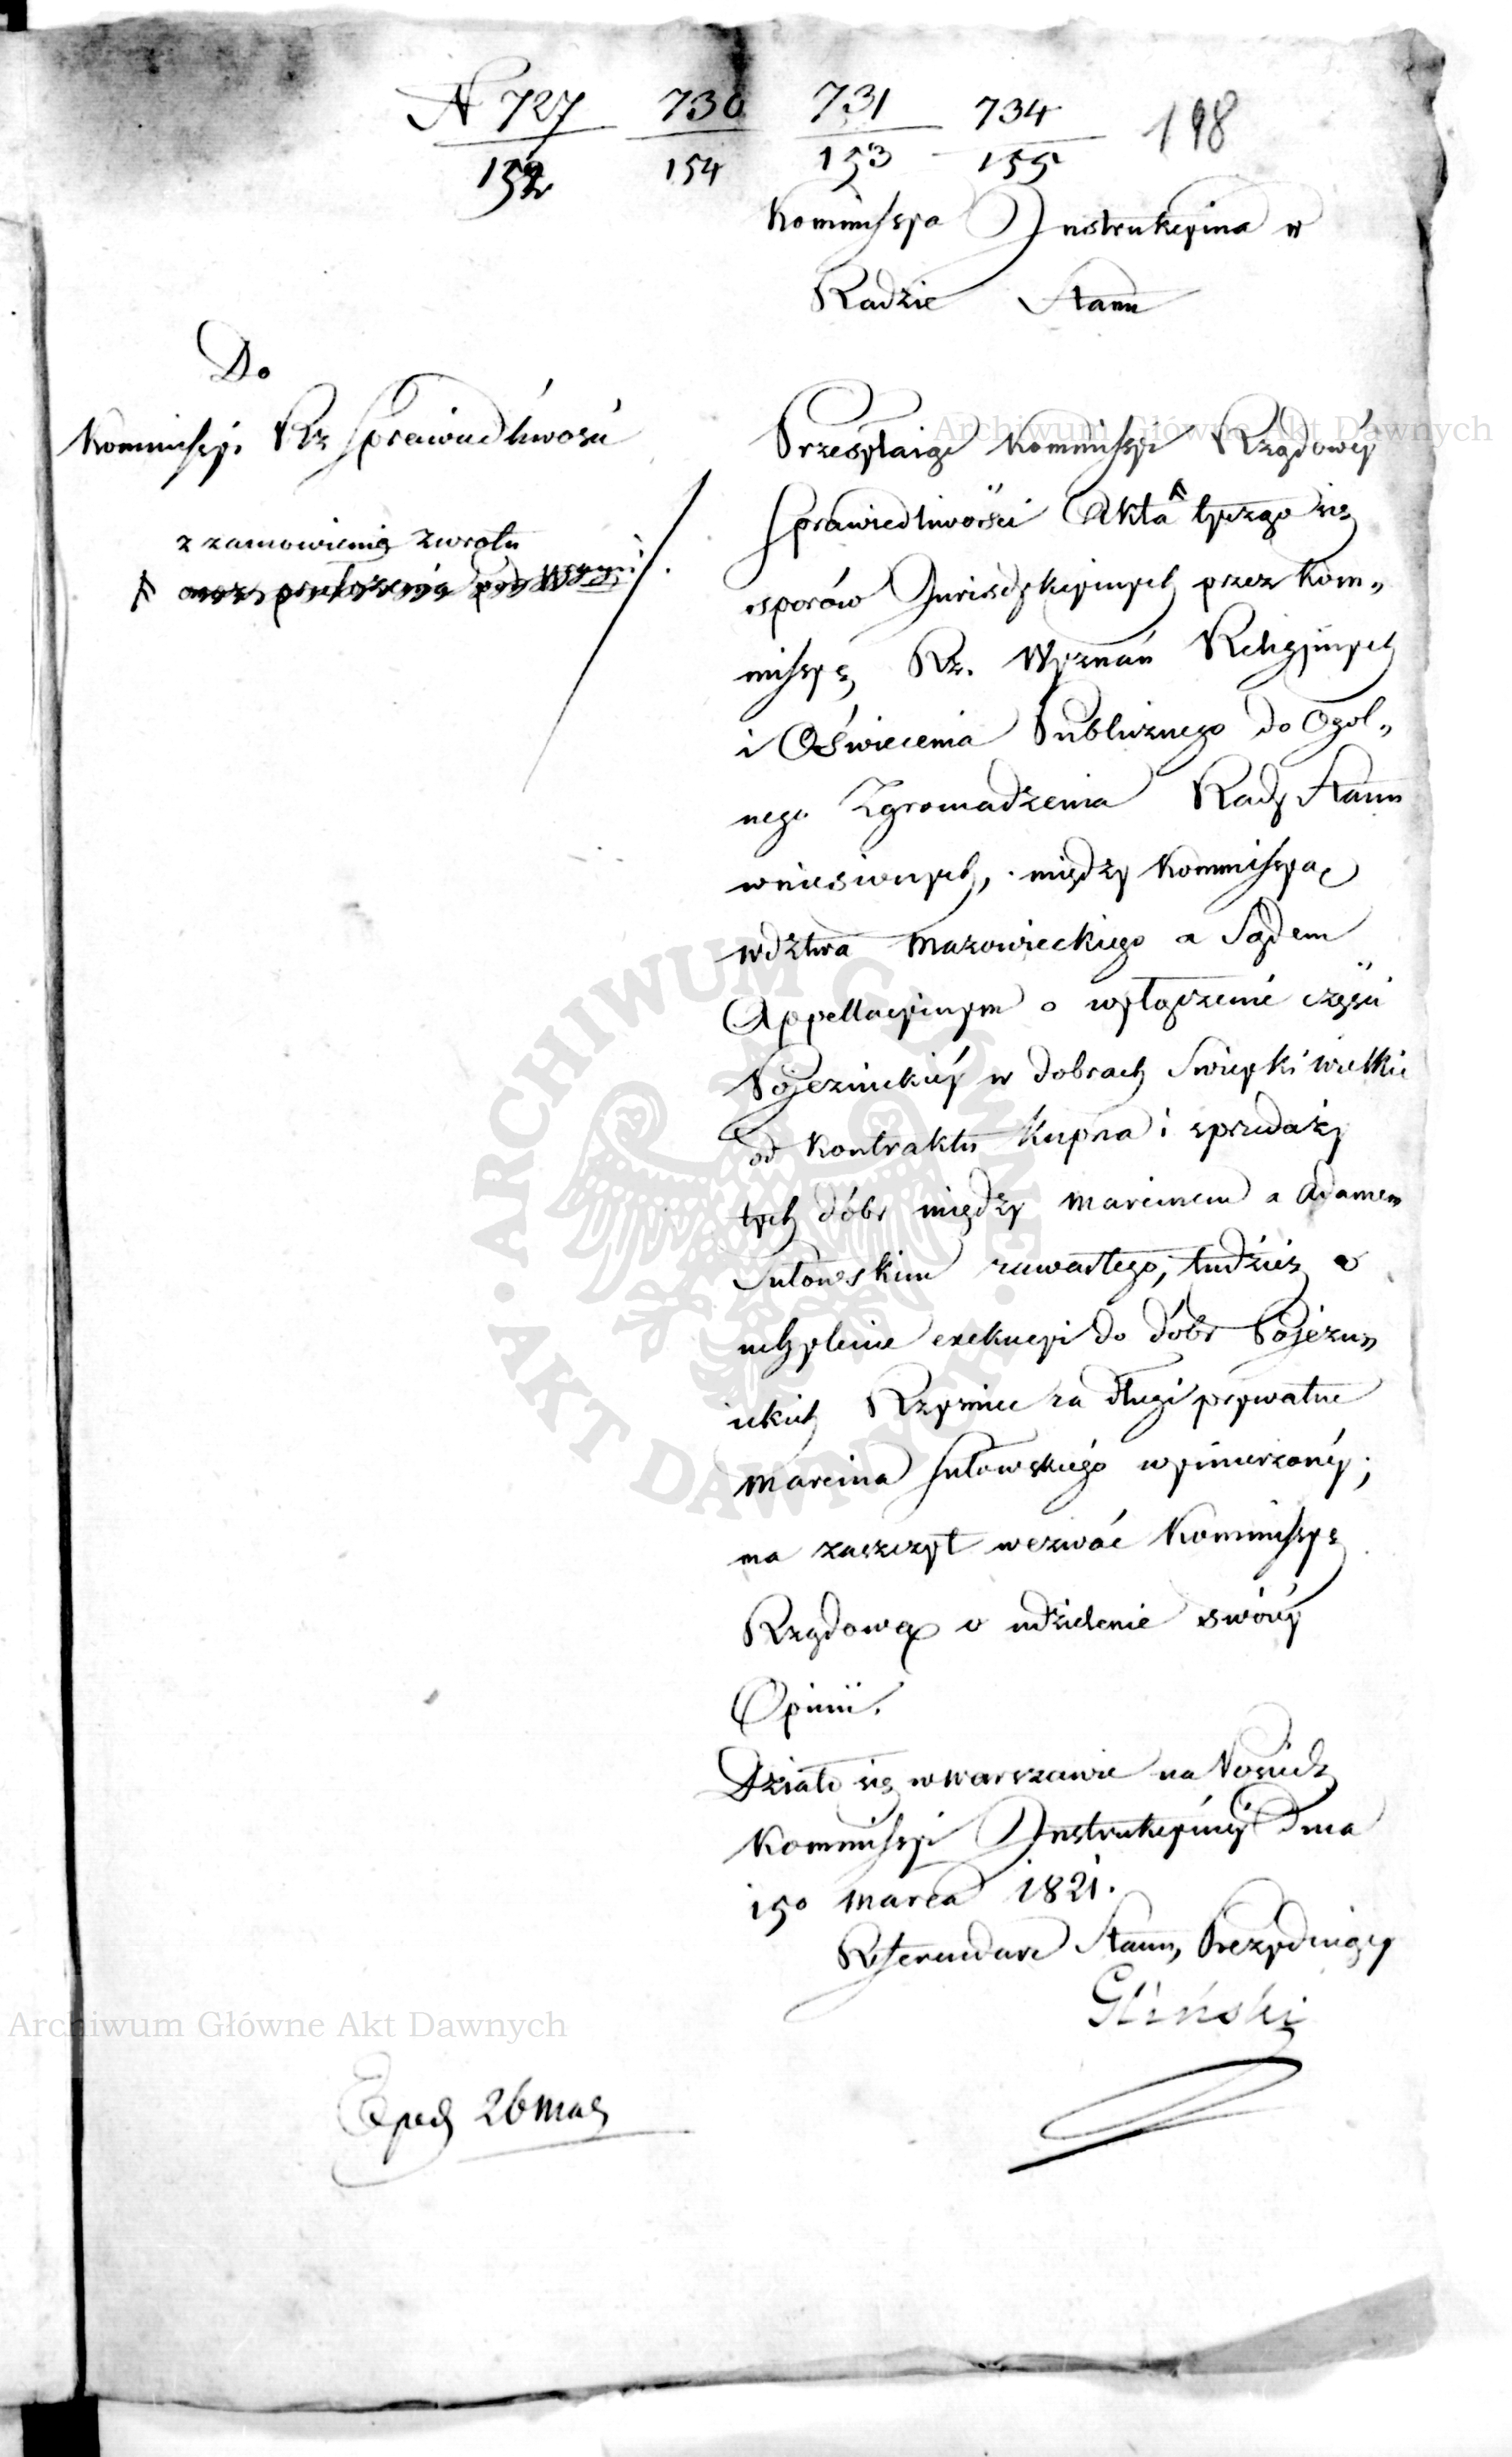 N 727 730 731 734 198
152 154 153 155
Kommissya Instrukcyina w
Radzie Stanu
Do
Kommissyi Rz Sprawiedliwości
z zamowieniem zwrotu
Przesyłaiąc Kommissyi Rządowéy
Sprawiedliwości Akta tyczące się
sporów Jurisdykcyinych przez Kom„
missyę Rz. Wyznań Religijnych
i Oświecenia Publicznego do Ogól„
nego Zgromadzenia Rady Stanu
wniesionych, między Kommissyą
wdztwa Mazowieckiego a Sądem
Appellacyinym o wyłączenie części
Pojezuickiéy w dobrach Swięcki wielkie
od Kontraktu Kupna i sprzedaży
tych dóbr między Marcinem a Adamem
Sutowskim zawartego, tudzież o
uchylenie exekucyi do dóbr Pojezu„
ickich Rzymiec za długi prywatne
Marcina Sutowskiego wymierzonéy;
ma zaszczyt wezwać Kommissyę
Rządową o udzielenie swéy
Opinii.
Działo się w Warszawie na Posiedz
Kommissyi Instrukcyinéy Dnia
15o Marca 1821.
Referendarz Stanu, Prezyduiący
Gliński
Exped 26 Mar
Archiwum Główne Akt Dawnych
Archiwum Główne Akt Dawnych
ARCHIWUM GŁÓWNE AKT DAWNYCH